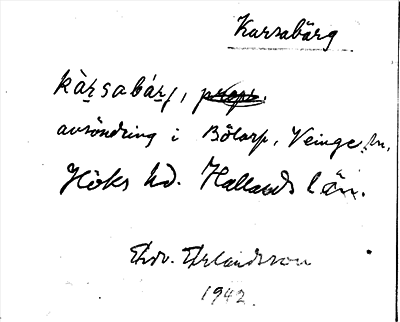 Karsabärg
kàr̲sabár̲j,
avsöndring i Bölarp, Veinge sn,
Höks hd. Hallands län.
Edv. Erlandsson
1942.